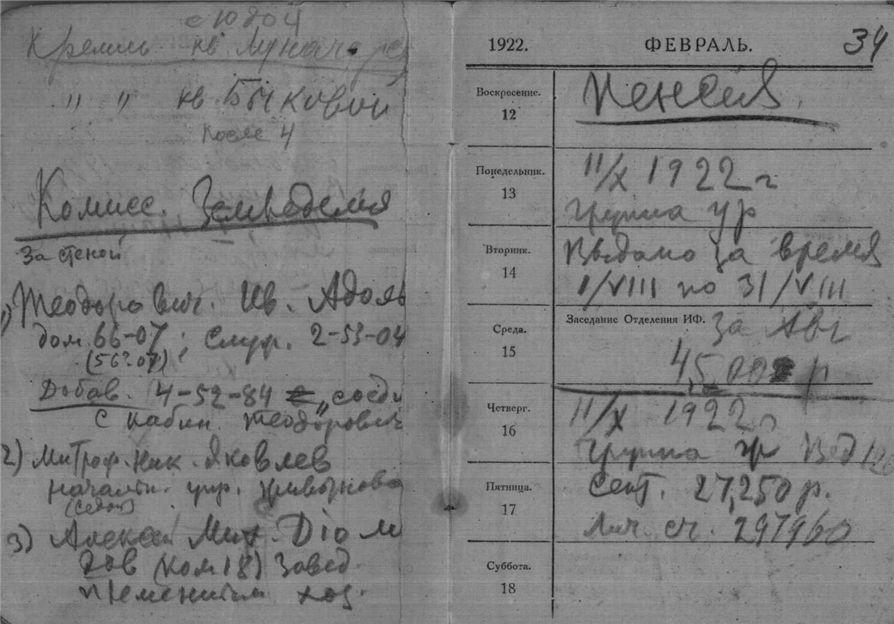 с юдой
Кремль кв Луначарс
" " кв Быковой
После 4
Комисс. Земледелия
За стеной
1) Теодорович. Ив. Адоль
дом 66-07; Служ. 2-53-04
(56?07)
Добав. 4-52-84 соеди
с кабин. Теодорович
2) Митроф. Ник. Яковлев
начальн. упр. животнов
(седой)
3) Алексей Мих. Дiом
дов (ком 18) Завед.
племенным хоз.
1922. ФЕВРАЛЬ. 34
Воскресенье. 12
Пенсия.
Понедельник. 13
11/X 1922 г
Группа
Вторник. 14
Выдано за время
1/VIII по 31/VIII
Среда. 15
Заседание Отделения ИФ. За Авг
4,500 р
Четверг. 16
11/X 1922 г
Группа
Пятница. 17
Сент. 27,250 р.
Лич. сч. 297960
Суббота. 18